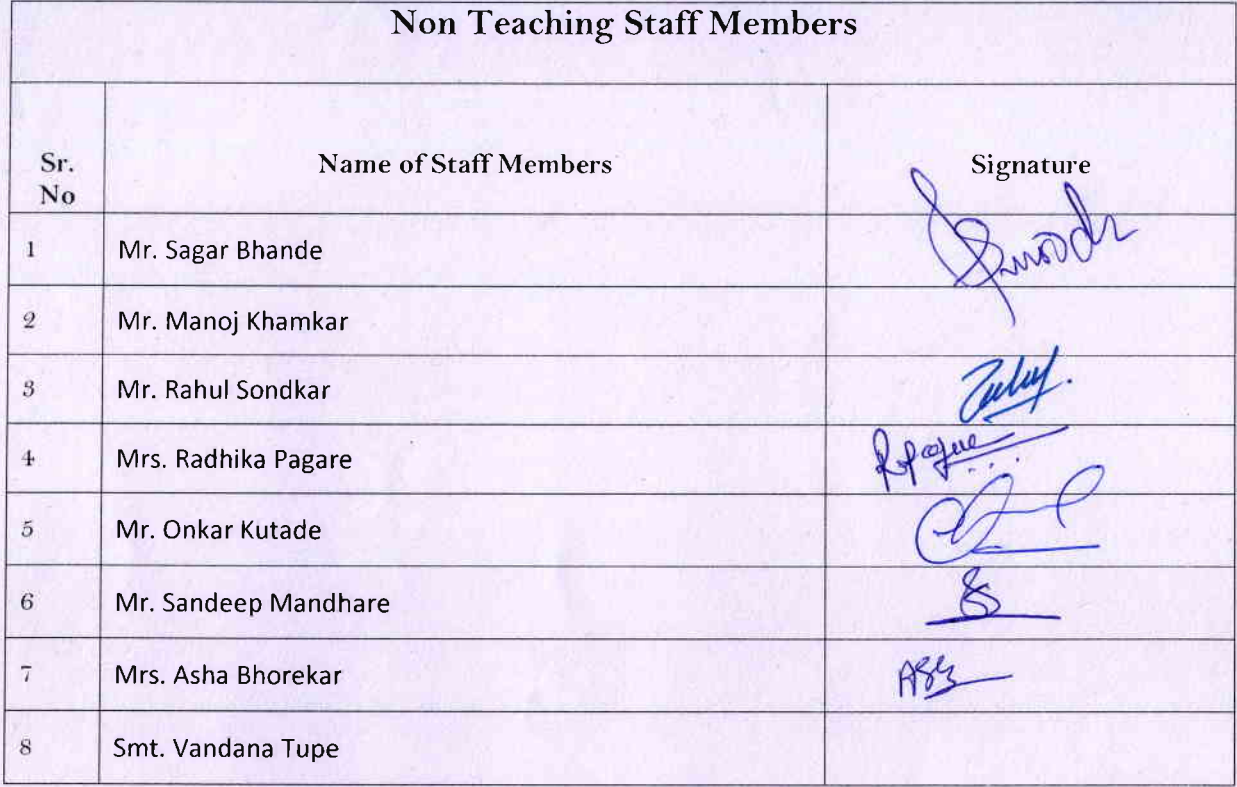 Non Teaching Staff Members
Sr. No Name of Staff Members Signature
1 Mr. Sagar Bhande
2 Mr. Manoj Khamkar
3 Mr. Rahul Sondkar
4 Mrs. Radhika Pagare
5 Mr. Onkar Kutade
6 Mr. Sandeep Mandhare
7 Mrs. Asha Bhorekar
8 Smt. Vandana Tupe